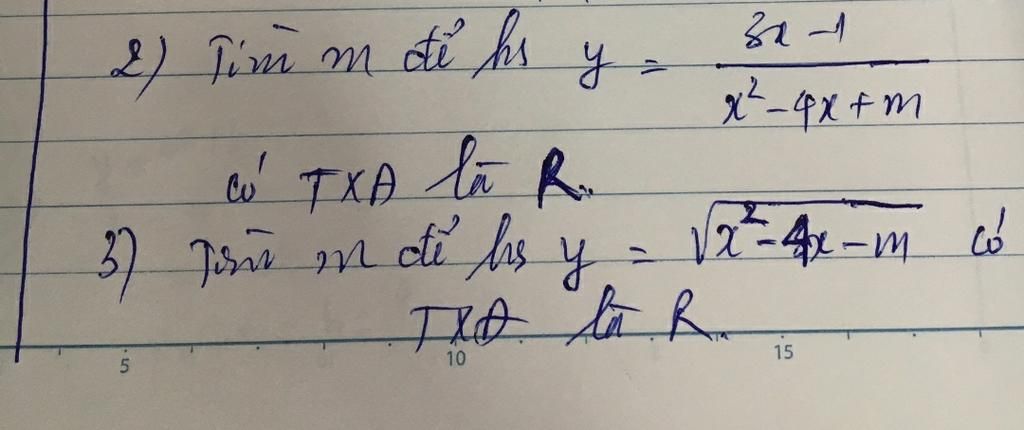 2) Tìm m để hs y = \frac{3x-1}{x^2-4x+m}
có TXĐ là R.
3) Tìm m để hs y = \sqrt{x^2-4x-m} có
TXĐ là R.
5 10 15